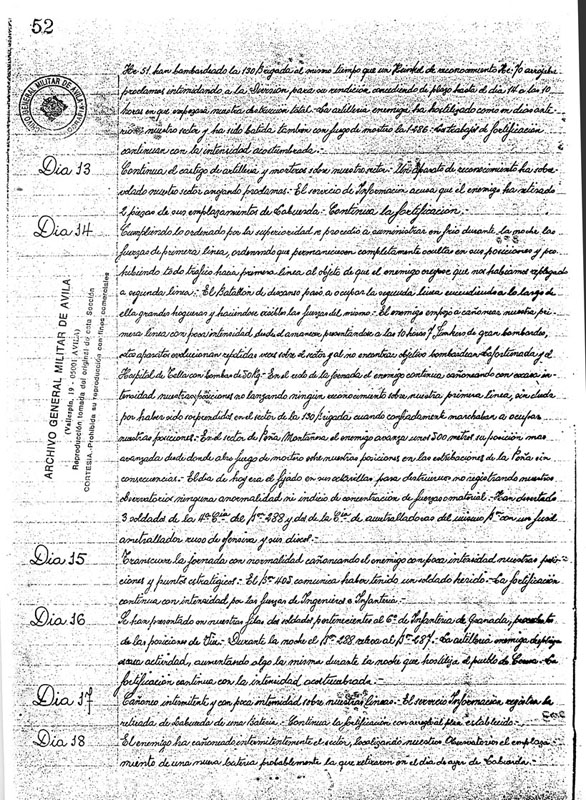 52
He 51 han bombardeado la 130 Brigada al mismo tiempo que un Heinkel de reconocimiento He-70 arrojaba
proclamas intimidando a la División para su rendición, concediendo de plazo hasta el día 14 a las 10
horas en que empezaría nuestra destrucción total.- La artillería enemiga ha hostilizado como en días ante-
riores nuestro sector y ha sido batida también con fuego de mortero la 1486.- Los trabajos de fortificación
continuan con la intensidad acostumbrada.-
Día 13
Continua el castigo de artillería y morteros sobre nuestro sector.- Un aparato de reconocimiento ha sobre-
volado nuestro sector arrojando proclamas.- El servicio de Información acusa que el enemigo ha retirado
2 piezas de sus emplazamientos de Laburda.- Continua la fortificación.-
Día 14
Cumpliendo lo ordenado por la superioridad se procedió a suministrar en frío durante la noche las
fuerzas de primera línea, ordenando que permaneciesen completamente ocultas en sus posiciones y pro-
hibiendo todo tráfico hacia primera línea al objeto de que el enemigo creyese que nos habíamos replegado
a segunda línea.- El Batallón de descanso pasó a ocupar la segunda línea encendiendo a lo largo de
ella grandes hogueras y haciéndose visible las fuerzas del mismo.- El enemigo empezó a cañonear nuestra pri-
mera línea con poca intensidad desde el amanecer, presentándose a las 10 horas 7 Junkers de gran bombardeo,
estos aparatos evolucionan repetidas veces sobre el sector y al no encontrar objetivo bombardean Lafortunada y el
Hospital de Tella con bombas de 50 kg.- En el resto de la jornada el enemigo continua cañoneando con escasa in-
tensidad nuestras posiciones no lanzando ningún reconocimiento sobre nuestra primera línea, sin duda
por haber sido sorprendidos en el sector de la 130 Brigada cuando confiadamente marchaban a ocupar
nuestras posiciones.- En el sector de Peña Montañesa el enemigo avanza unos 300 metros su posición mas
avanzada desde donde abre fuego de mortero sobre nuestras posiciones en las estribaciones de la Peña sin
consecuencias.- El día de hoy era el fijado en sus octavillas para destruirnos no registrando nuestros
observatorios ninguna anormalidad ni indicio de concentración de fuerzas o material.- Han desertado
3 soldados de la 4ª Cía del Bón 288 y dos de la Cía de ametralladoras del mismo Bón con un fusil
ametrallador ruso de ofensiva y sus discos.-
Día 15
Transcurre la jornada con normalidad cañoneando el enemigo con poca intensidad nuestras posi-
ciones y puntos estratégicos.- El Bón 405 comunica haber tenido un soldado herido.- La fortificación
continua con intensidad por las fuerzas de Ingenieros e Infantería.-
Día 16
Se han presentado en nuestras filas dos soldados pertenecientes al 6º de Infantería de Granada, procedentes
de las posiciones de Vio.- Durante la noche el Bón 288 releva al Bón 287.- La artillería enemiga despliega
escasa actividad, aumentando algo la misma durante la noche que hostiliza el pueblo de
fortificación continua con la intensidad acostumbrada.-
Día 17
Cañoneo intermitente y con poca intensidad sobre nuestras líneas.- El servicio Información registra la
retirada de Laburda de una Batería.- Continua la fortificación con arreglo al plan establecido.-
Día 18
El enemigo ha cañoneado intermitentemente el sector, localizando nuestros Observatorios el emplaza-
miento de una nueva batería probablemente la que retiraron en el día de ayer de Laburda.-
ARCHIVO GENERAL MILITAR DE AVILA
(Vallespín, 19 - 05001 AVILA)
Reproducción tomada del original de esta Sección
CORTESIA - Prohibida su reproducción con fines comerciales